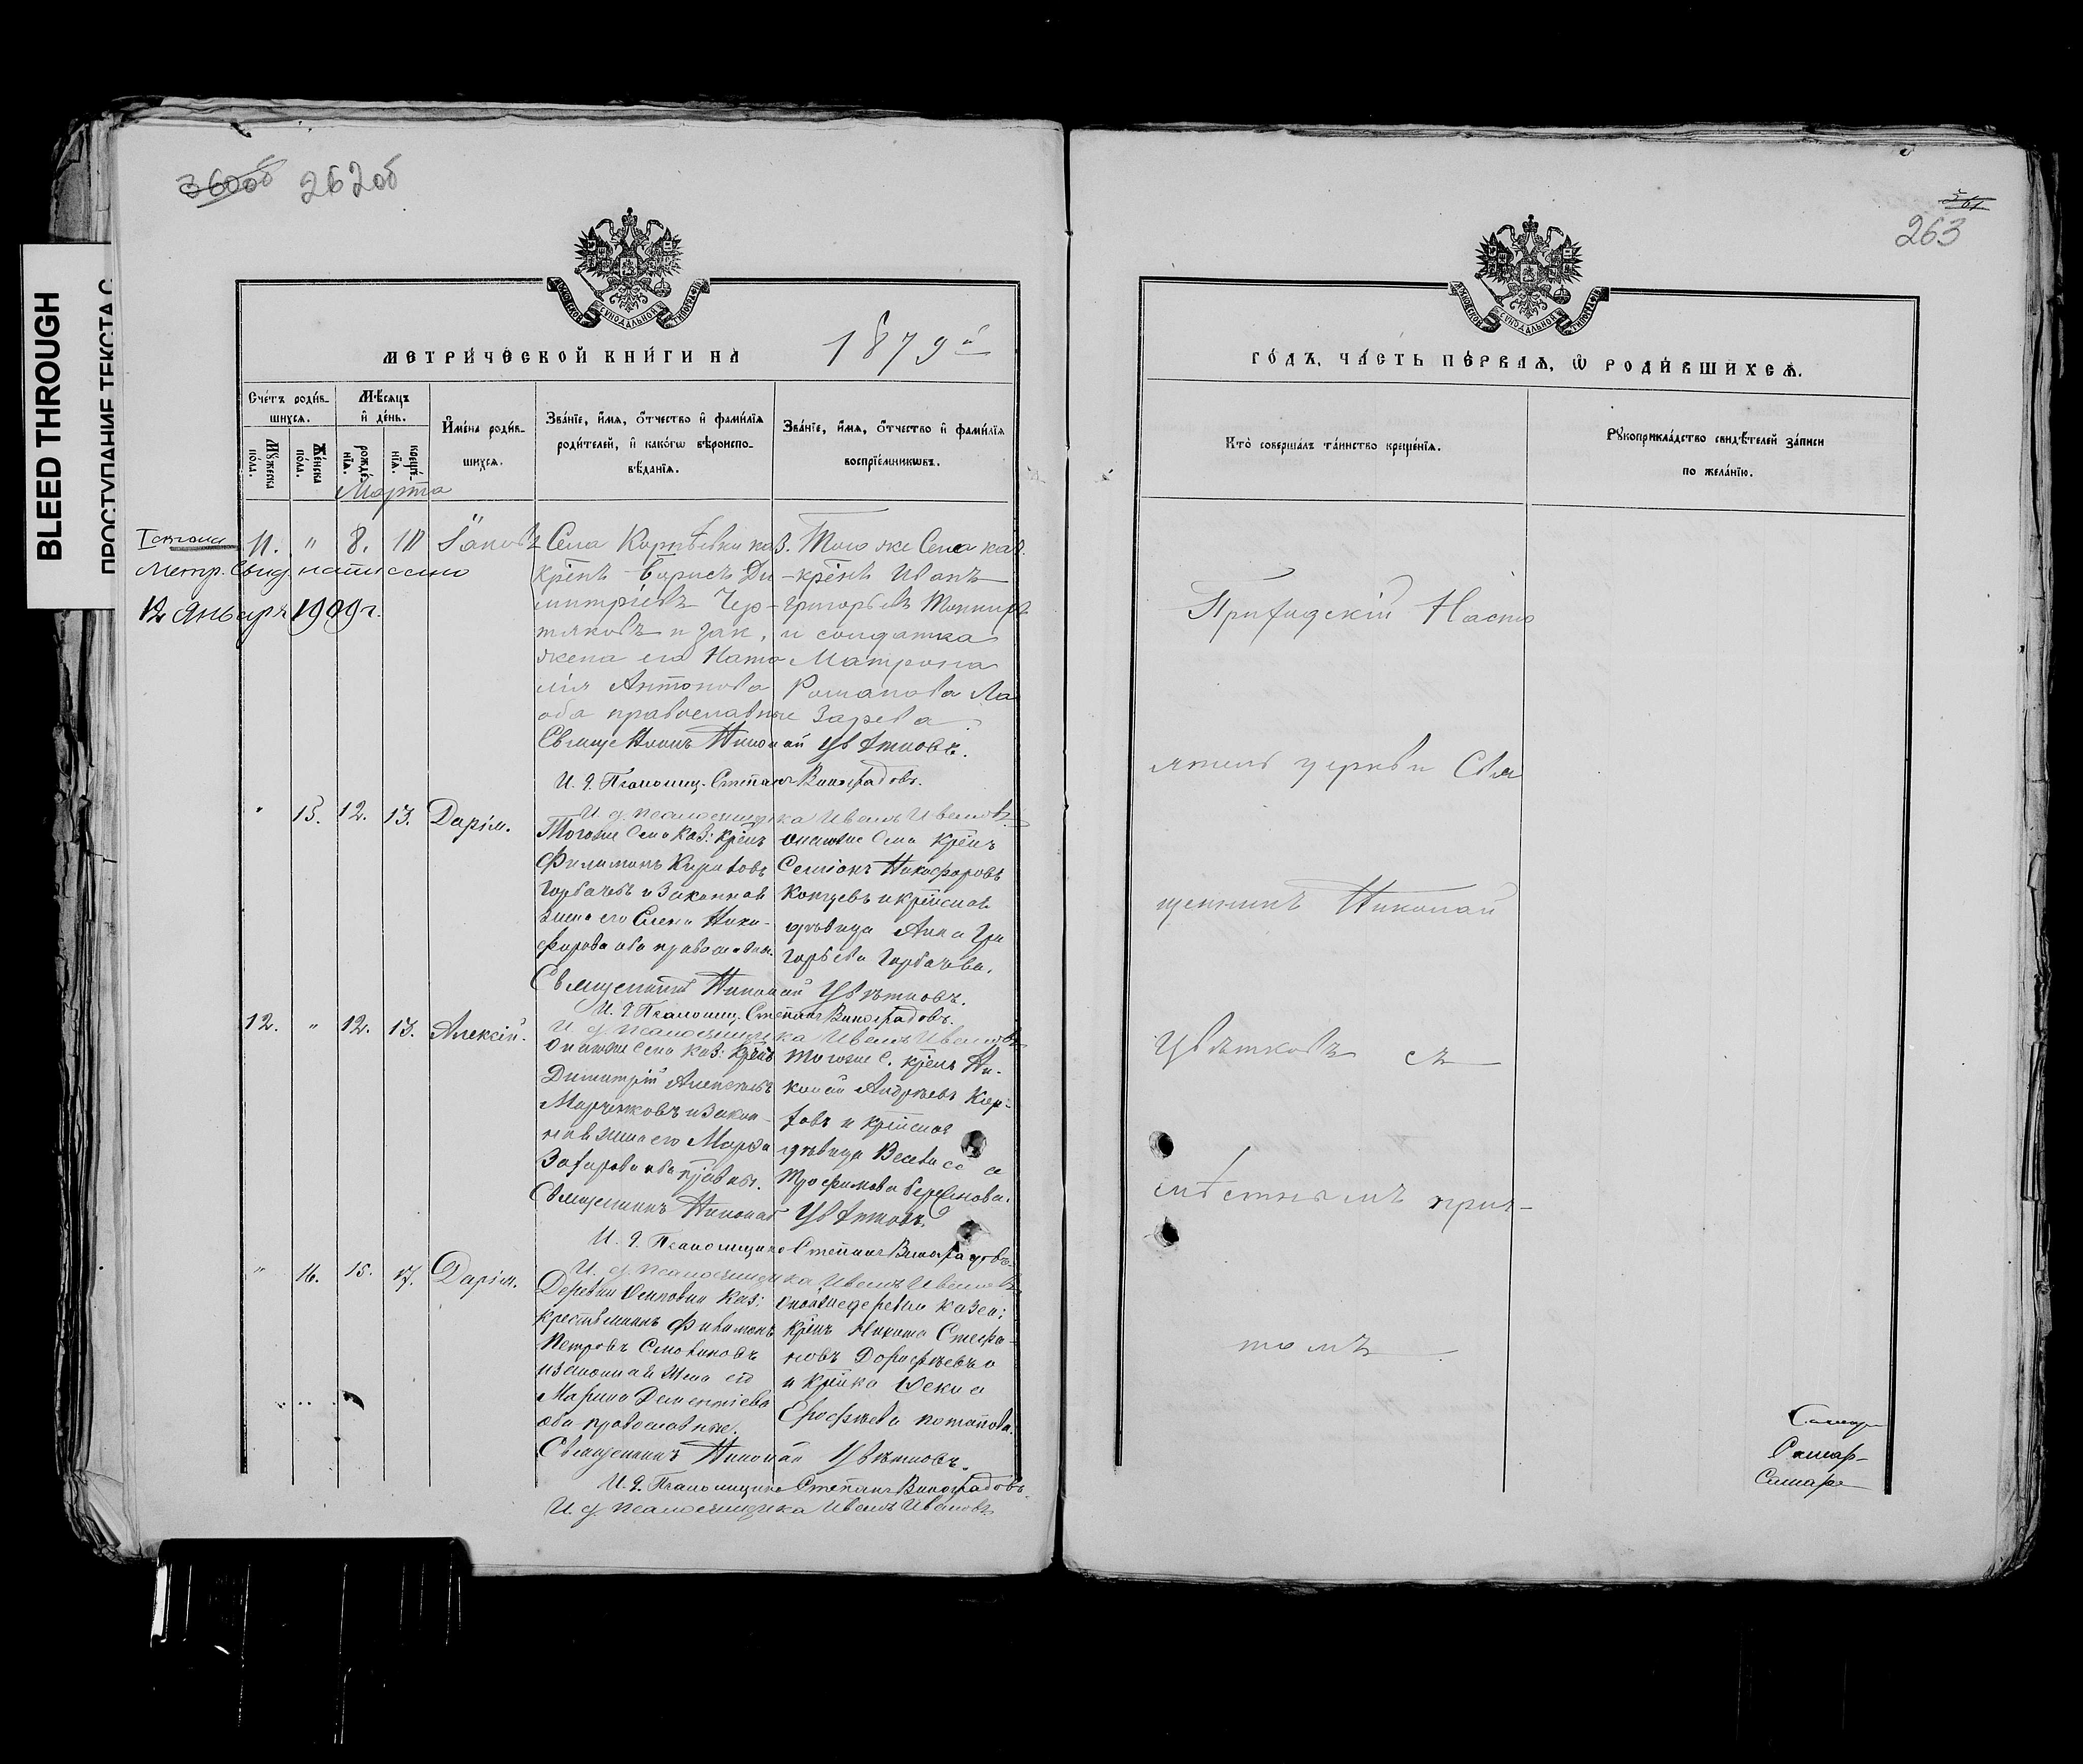 BLEED THROUGH
ПРОСТУПАНИЕ ТЕКСТА С
360об 262об
МОСКОВСКОЙ СѴНОДАЛЬНОЙ ТИПОГРАФІИ
МЕТРИ́ЧЕСКОЙ КНИ́ГИ НА 1879й
Сче́тъ роди́в-
шихсѧ.
Мѣ́сѧцъ
и҆ де́нь.
Мꙋ́жеска
по́ла.
Же́нска
по́ла.
рожде́-
нїѧ.
креще́-
нїѧ.
И҆мена̀ роди́в-
шихсѧ.
Зва́нїе, и҆́мѧ, ѻ҆́тчество и҆ фамилїѧ
роди́телей, и҆ како́гѡ вѣроиспо-
вѣ́данїѧ.
Зва́нїе, и҆́мѧ, ѻ҆́тчество и҆ фамилїѧ
воспрїе́мникѡвъ.
Марта
11. " 8. 10 Іаковъ
Метр. Свид. написано
12 Января 1909 г.
Села Корнѣевки каз.
крѣнъ Борисъ Ди-
митріевъ Чер-
тяковъ и зак.
жена его Ната
лія Антонова
оба православные
Того же Села каз.
крѣнъ Иванъ
Григорьевъ
и солдатка
Матрона
Романова Ла
зарева
Священникъ Николай Цвѣтковъ.
И. д. Псаломщ. Степанъ Виноградовъ.
И. д. псаломщика Иванъ Ивановъ
" 15. 12. 13. Дарія.
Тогоже Села каз: крѣнъ
Филимонъ Кириловъ
Горбачевъ и Законная
жена его Елена Ники-
форова оба православн.
Онагоже Села крѣнъ
Семіонъ Никифоровъ
Концевъ и крѣнская
дѣвица Анна Гри
горьева Горбачева.
Священникъ Николай Цвѣтковъ.
И. д. Псаломщ. Степанъ Виноградовъ.
И. д. псаломщика Иванъ Ивановъ
12. " 12. 13. Алексій.
Онагоже Села каз: крѣнъ
Димитрій Алексѣевъ
Марченковъ и Закон-
ная жена его Марѳа
Захарова оба правосл.
Тогоже С. крѣнъ Ни-
колай Андреевъ Кир-
и крѣнская
дѣвица Васса
Трофимова
Священникъ Николай Цвѣтковъ.
И. д. Псаломщика Степанъ Виноградовъ
И. д. псаломщика Иванъ Ивановъ
" 16. 15. 17. Дарія.
Деревни Осиповки каз:
крестьянинъ Филимонъ
Петровъ Смотиковъ
и законная жена его
Марина Дементіева
оба православные.
Онойже деревни казен:
крѣнъ Никита Стефа-
новъ Дорофѣевъ
и крѣнка
Ерофѣева Потапова.
Священникъ Николай Цвѣтковъ.
И. д. Псаломщика Степанъ Виноградовъ.
И. д. псаломщика Иванъ Ивановъ
361
263
МОСКОВСКОЙ СѴНОДАЛЬНОЙ ТИПОГРАФІИ
ГО́ДЪ, ЧА́СТЬ ПЕ́РВАѦ, Ѡ҆ РОДИ́ВШИХСѦ.
Кто̀ соверша́лъ та́инство креще́нїѧ.
Рꙋкоприкла́дство свидѣ́телей за́писи
по жела́нїю.
Приходскій Насто
ятель церкви Свя
щенникъ Николай
Цвѣтковъ съ
мѣстнымъ прич-
томъ
Самар-
Самар-
Самар-